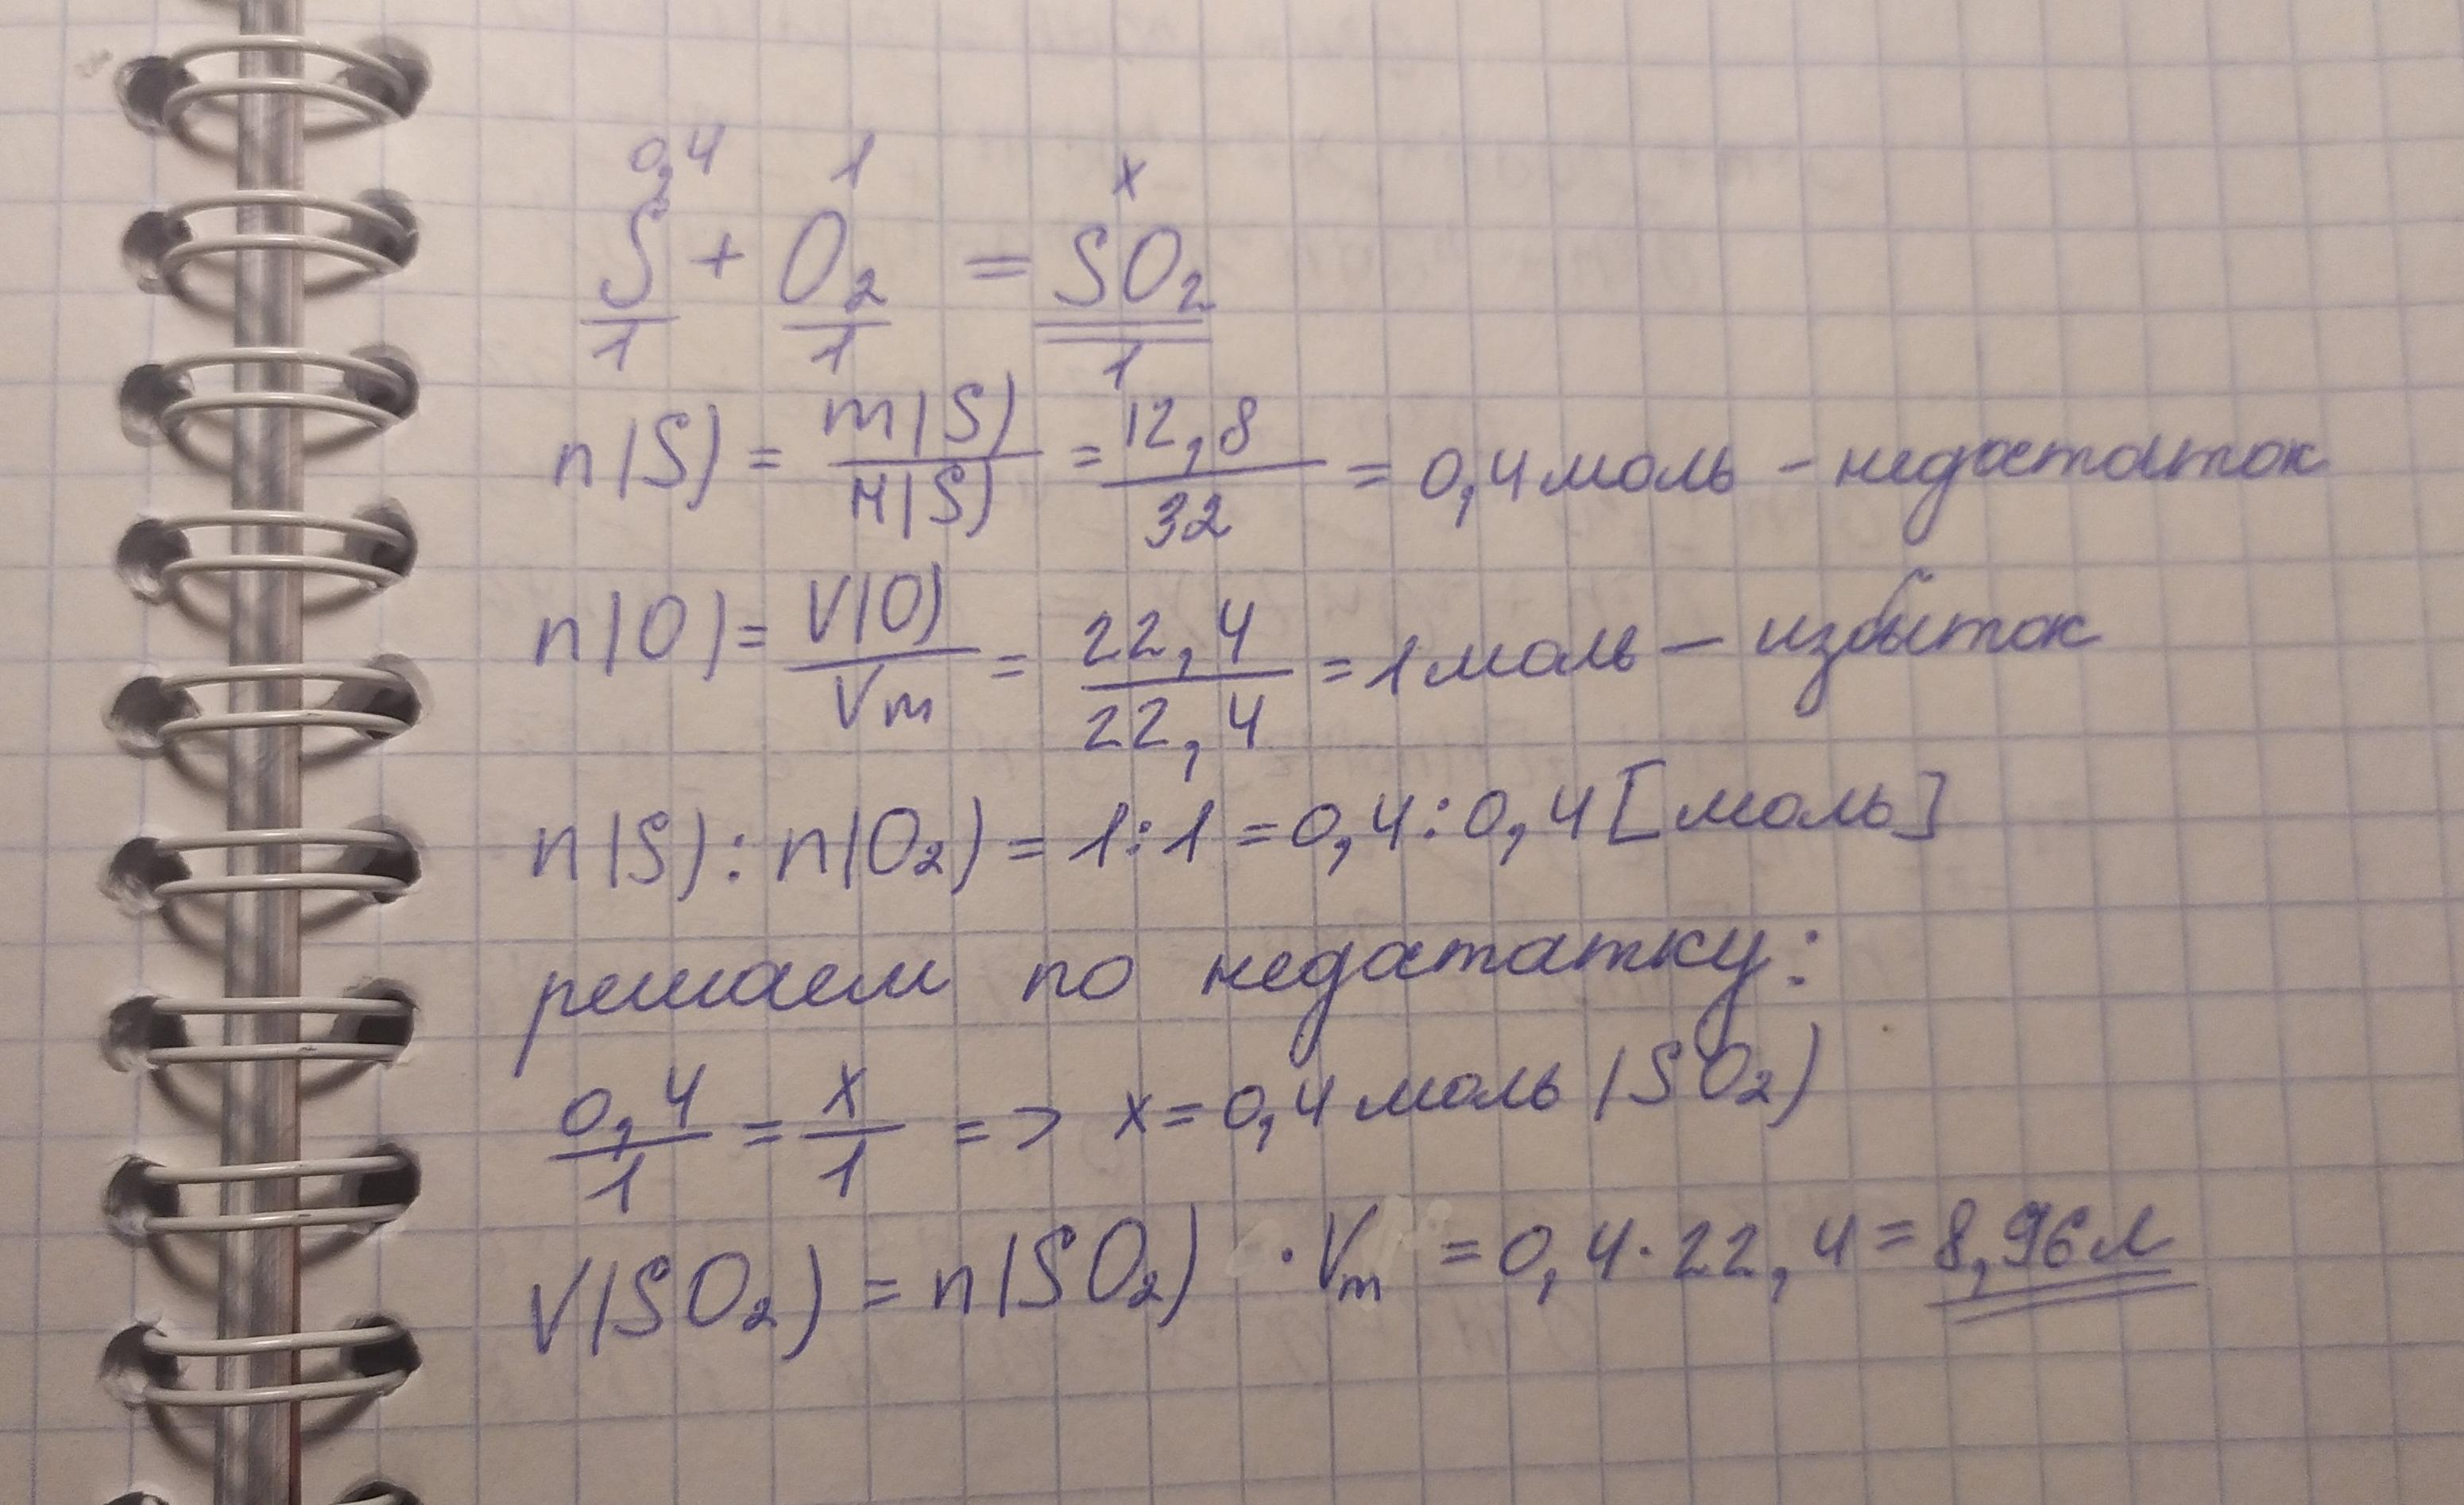 0,4 1 x
S + O₂ = SO₂
1 1 1
n(S) = m(S)/M(S) = 12,8/32 = 0,4 моль - недостаток
n(O) = V(O)/Vm = 22,4/22,4 = 1 моль - избыток
n(S) : n(O₂) = 1:1 = 0,4:0,4 [моль]
решаем по недостатку:
0,4/1 = x/1 => x = 0,4 моль (SO₂)
V(SO₂) = n(SO₂) · Vm = 0,4 · 22,4 = 8,96 л